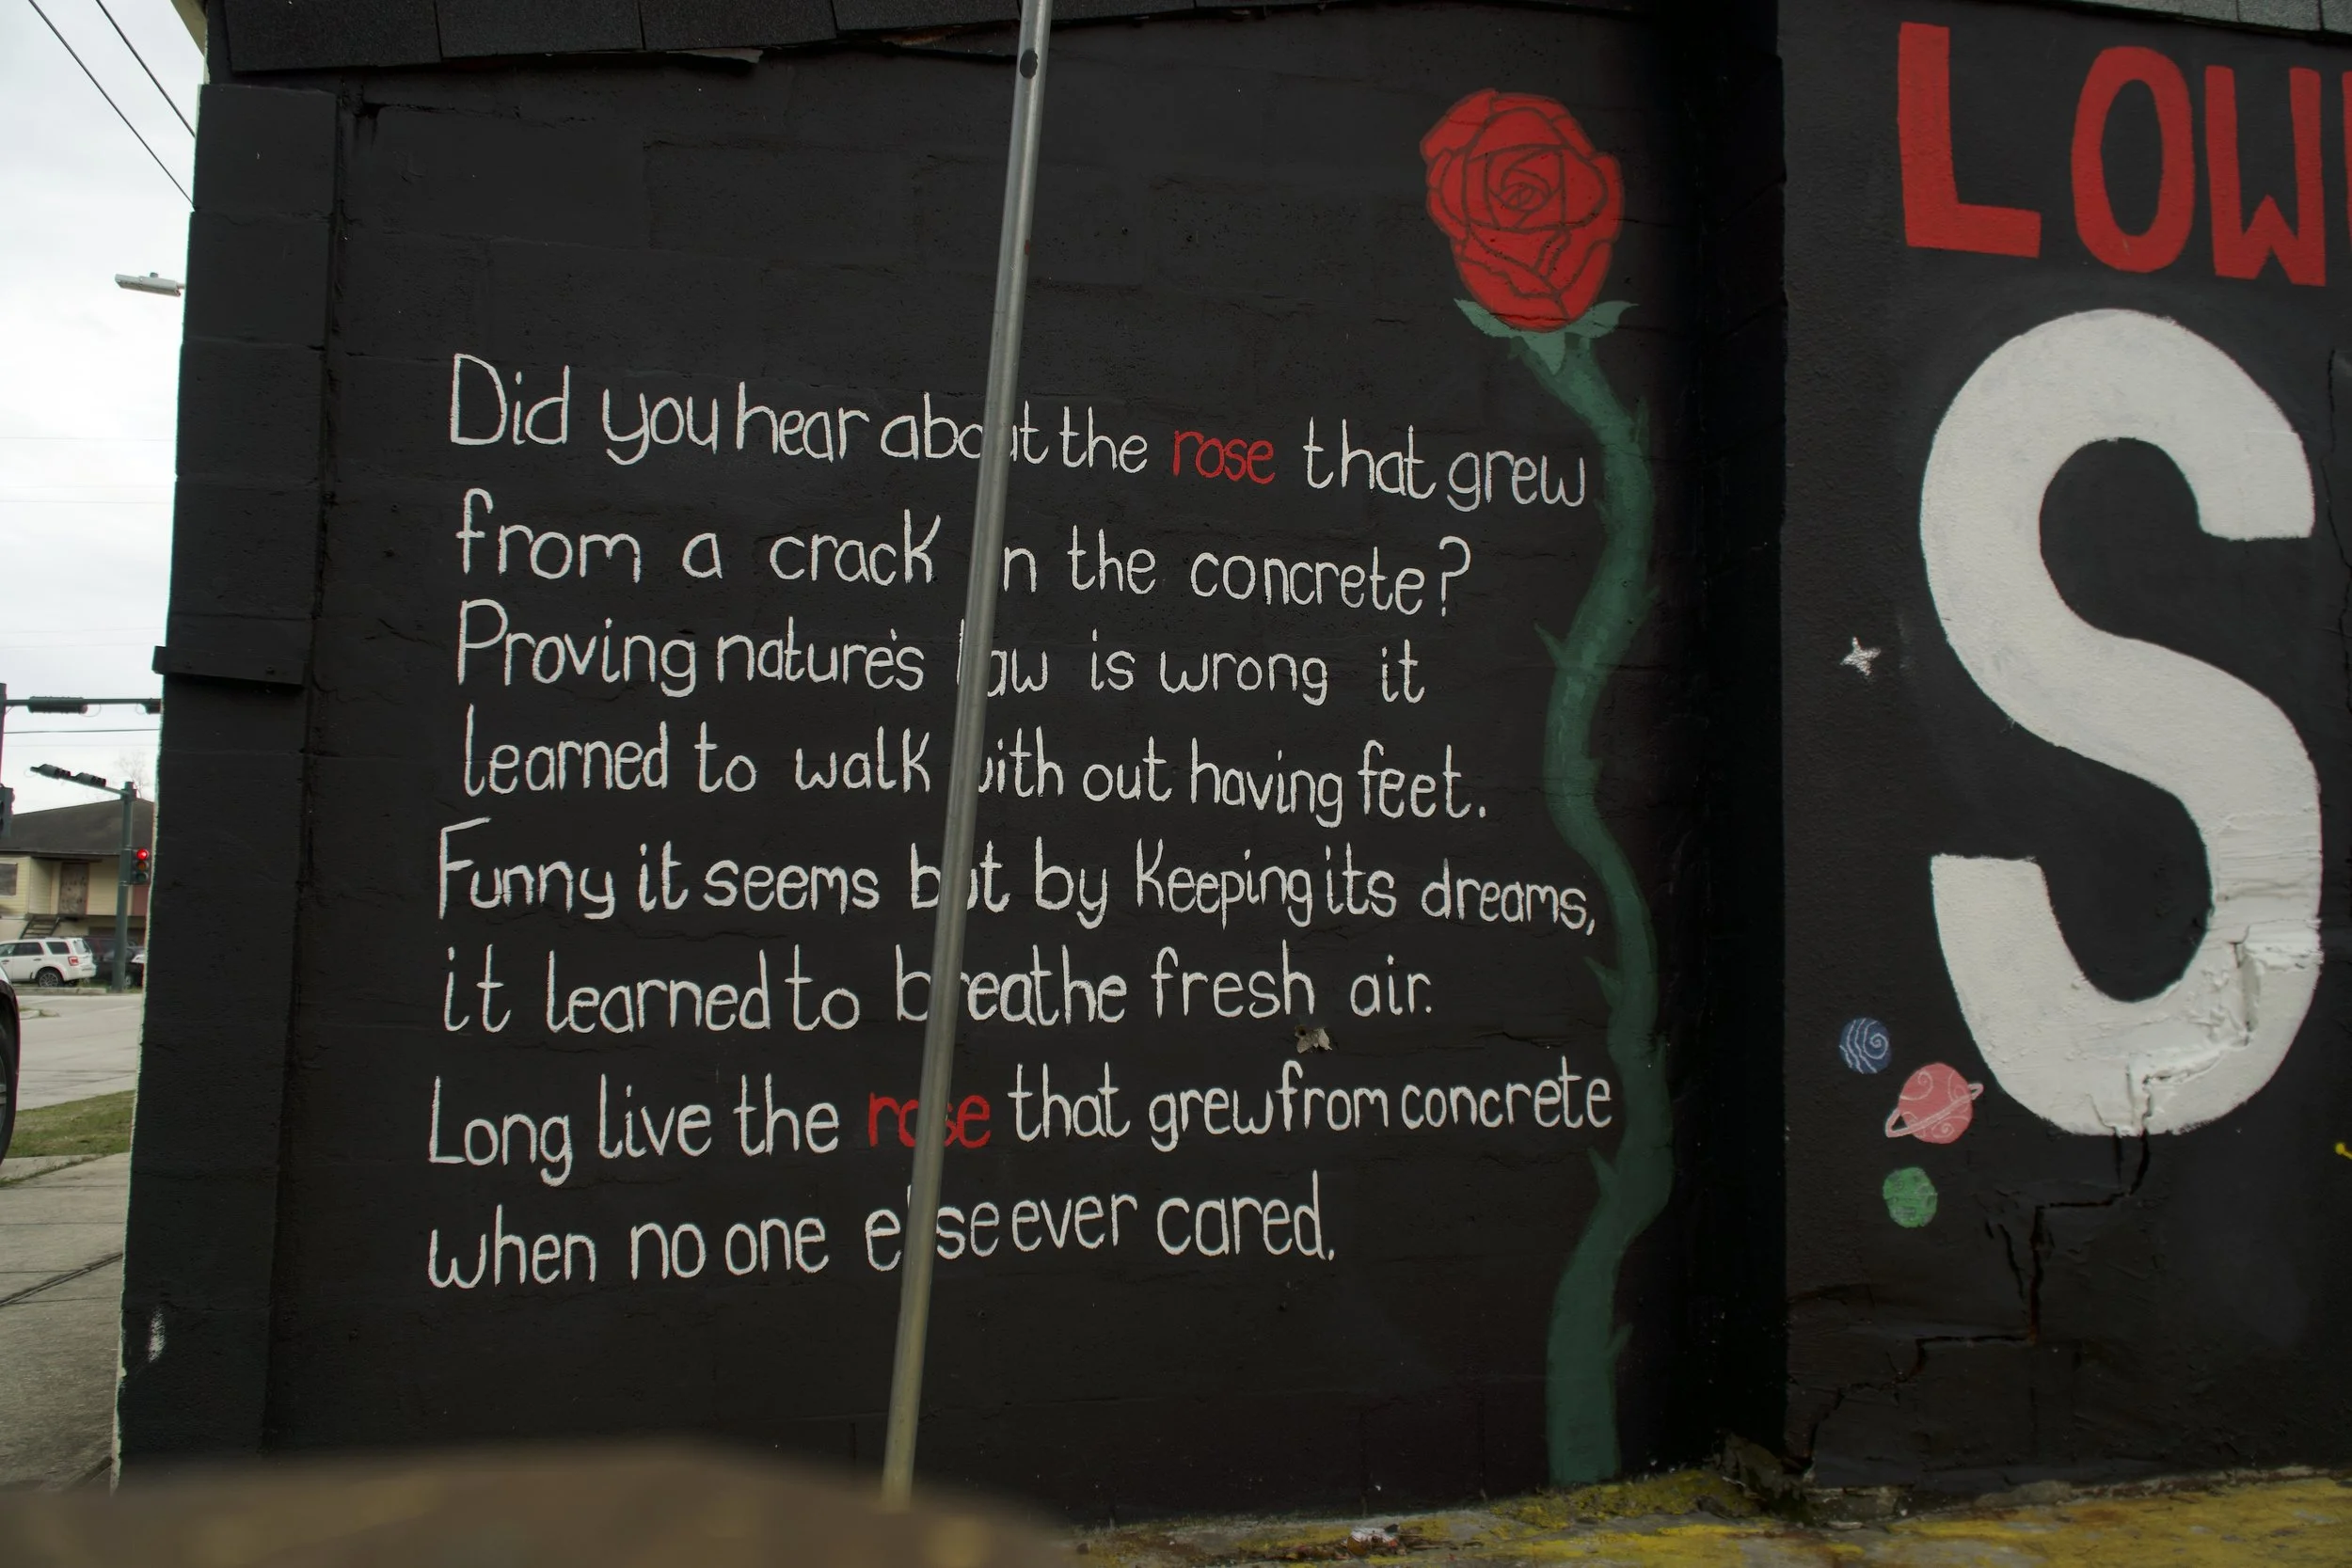 Did you hear about the rose that grew
from a crack in the concrete?
Proving nature's law is wrong it
learned to walk with out having feet.
Funny it seems but by Keeping its dreams,
it learned to breathe fresh air.
Long live the rose that grew from concrete
when no one else ever cared.
LOW
S